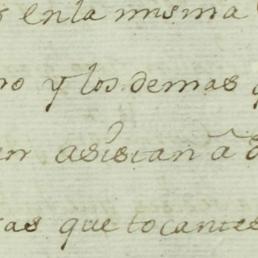 en la misma
no y los demas
en asistan à
as que tocantes